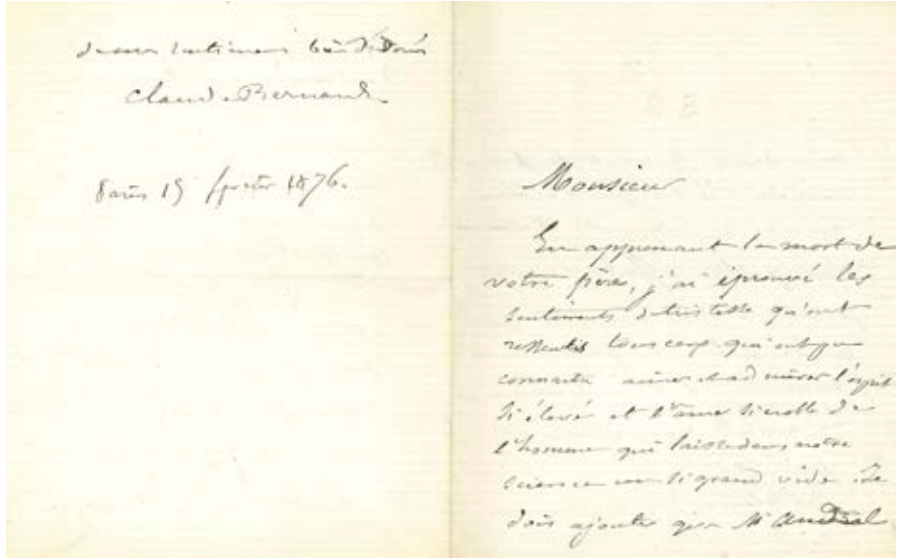 de mes sentiments bien dévoués
Claude Bernard
Paris 15 février 1876.
Monsieur
En apprenant la mort de
votre père, j'ai éprouvé les
sentiments de tristesse qu'ont
ressentis tous ceux qui ont pu
connaitre aimer et admirer l'esprit
si élevé et l'âme si noble de
l'homme qui laisse dans notre
science un si grand vide. Je
dois ajouter que Mr Andral